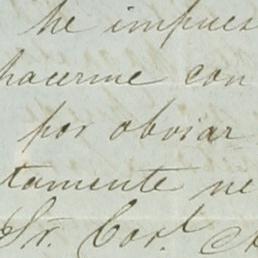 he impues
hacerme con
por obviar
tamente ne
Sr. Cor.l